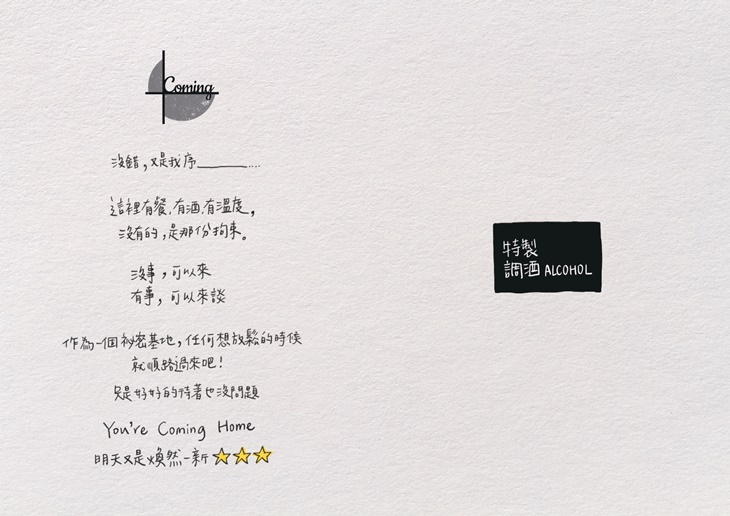 Coming
沒錯，又是我序______....
這裡有餐，有酒，有溫度，
沒有的，是那份拘束。
沒事，可以來
有事，可以來談
作為一個祕密基地，任何想放鬆的時候
就順路過來吧！
只是好好的待著也沒問題
You're Coming Home
明天又是煥然一新
特製
調酒 ALCOHOL